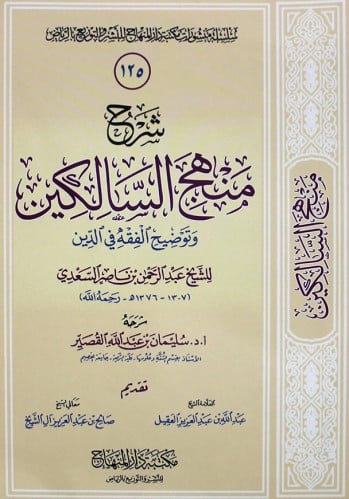 سلسلة منشورات مكتبة دار المنهاج للنشر والتوزيع بالرياض
١٢٥
شرح
منهج السالكين
وتوضيح الفقه في الدين
للشيخ عبد الرحمن بن ناصر السعدي
(١٣٠٧ - ١٣٧٦هـ - رحمه الله)
شرحه
أ.د. سليمان بن عبد الله القصير
تقديم
العلامة الشيخ
عبد الله بن عبد العزيز العقيل
معالي الشيخ
صالح بن عبد العزيز آل الشيخ
مكتبة دار المنهاج
للنشر والتوزيع بالرياض
منهج السالكين